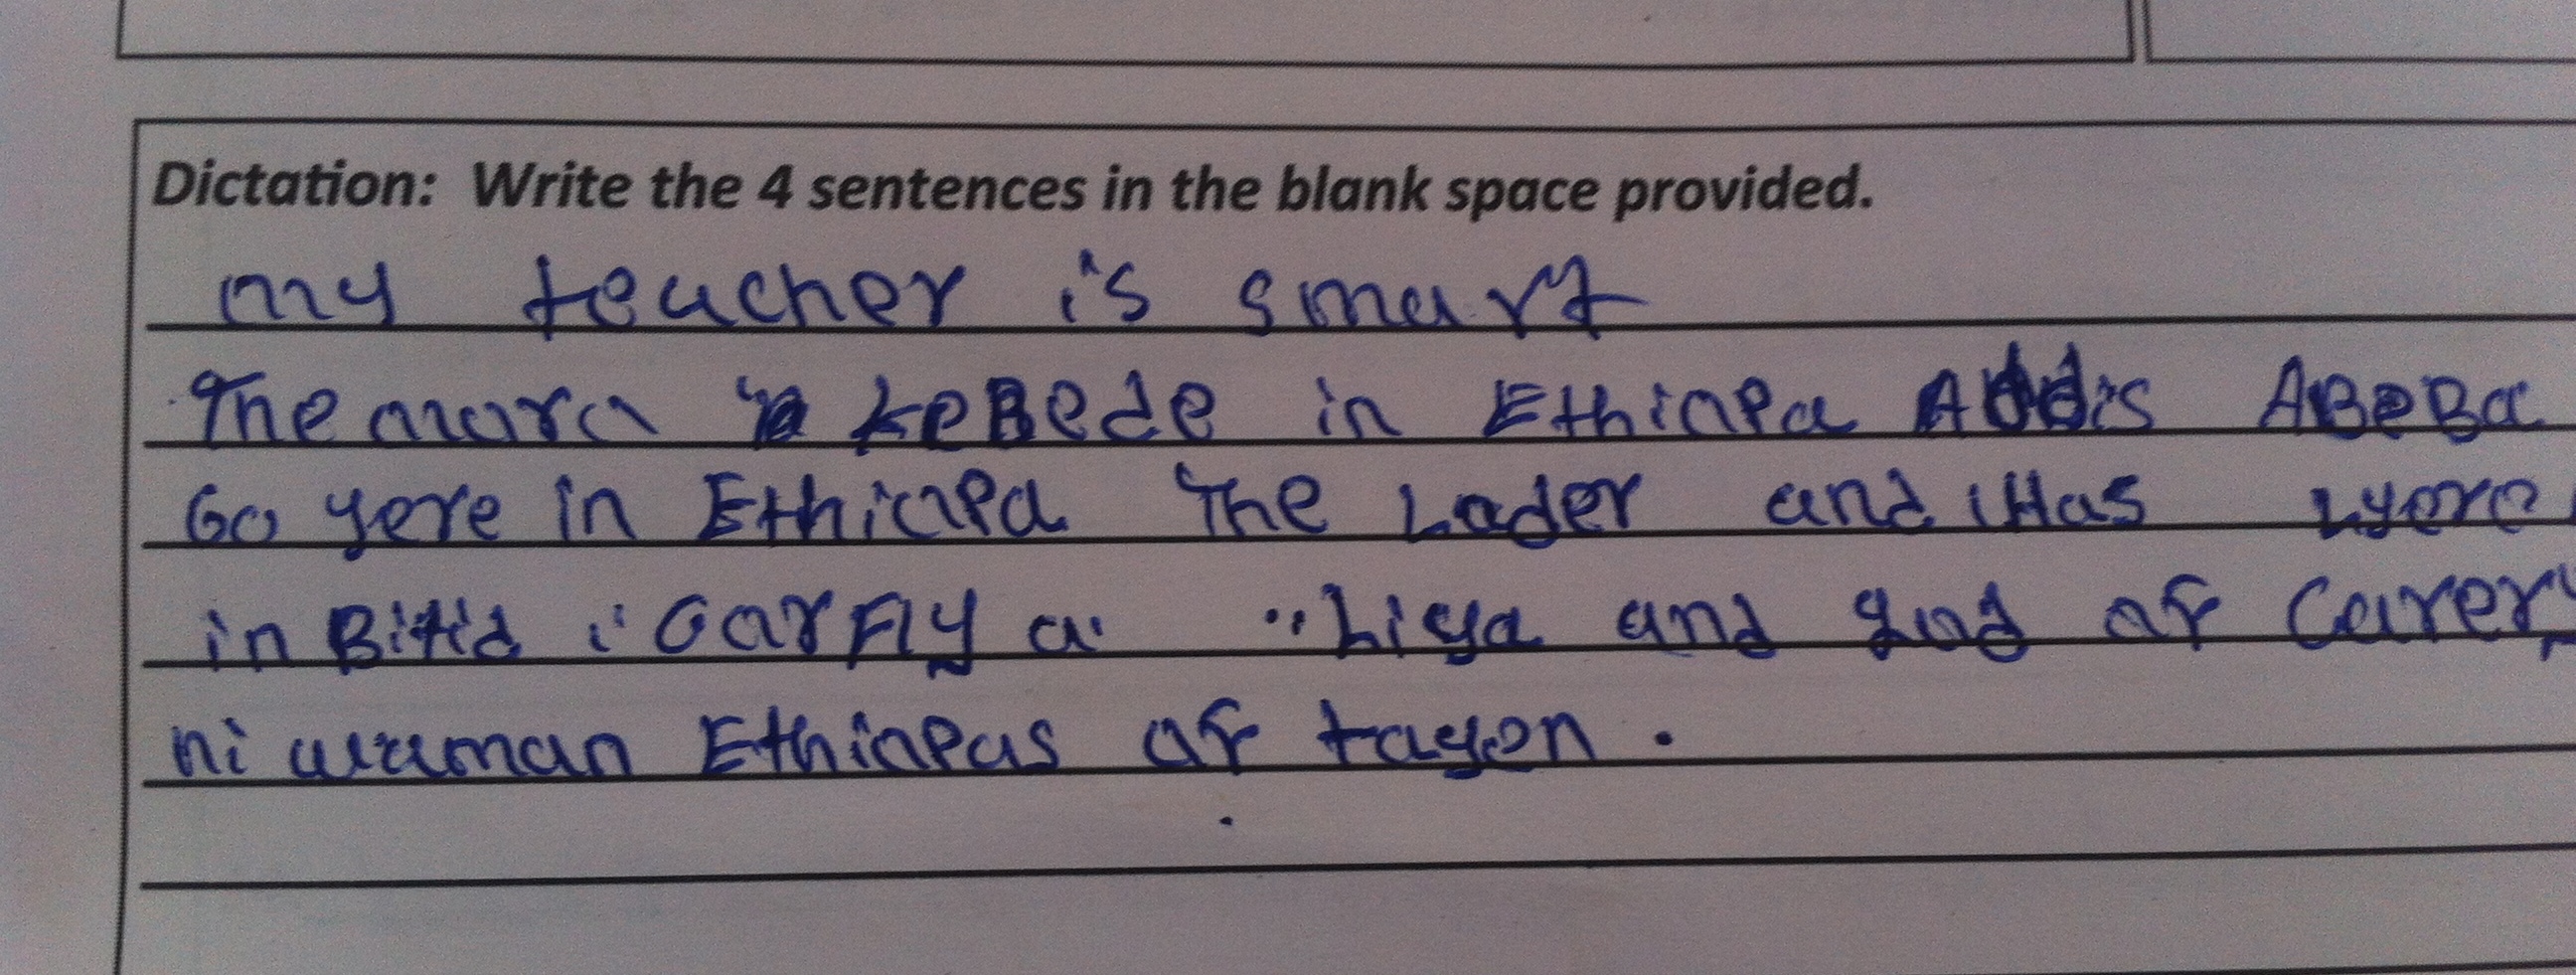 Dictation: Write the 4 sentences in the blank space provided.
my teacher is smart
The mora keBede in Ethiopa Addis ABeBa
Go yere in Ethiopa The Lader and Has
in i Garfly a Liya and god of
ni Ethiopas of tayen.